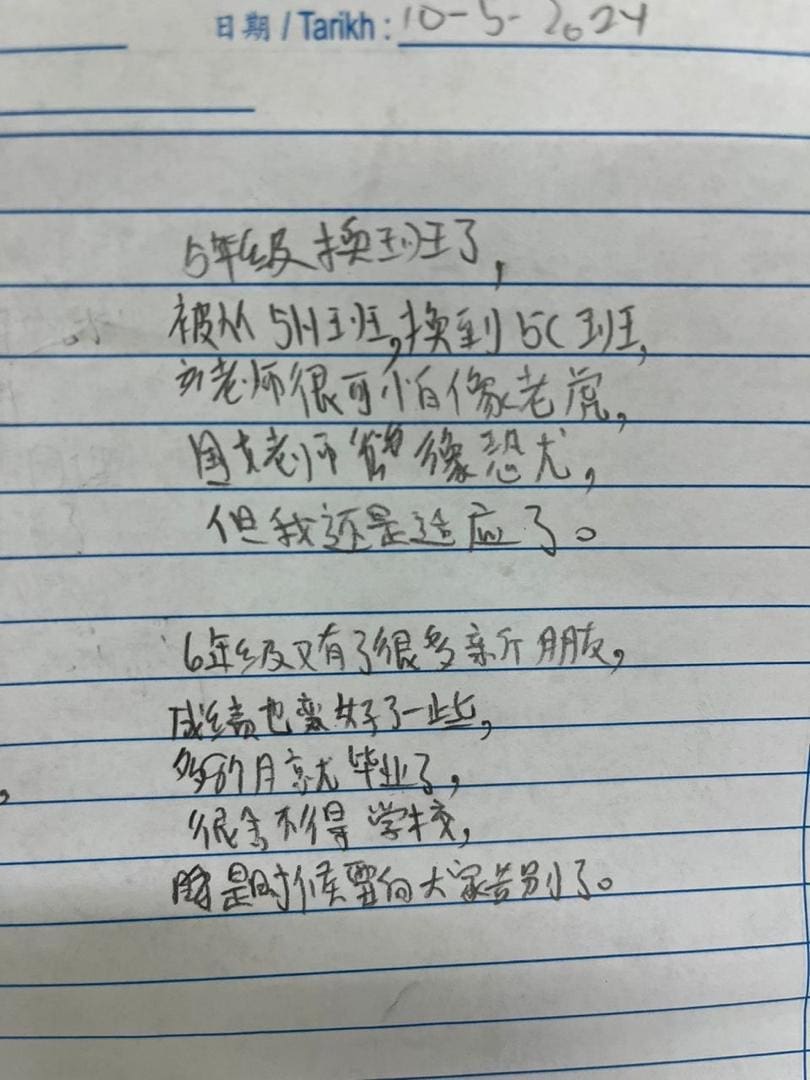 日期 / Tarikh : 10-5-2024
5年级换到班了,
被从5H班,换到5C班,
老师很可怕像老虎,
国文老师像恐龙,
但我还是适应了。
6年级又有了很多新朋友,
成绩也变好了一些,
多6个月就毕业了,
很舍不得学校,
是时候要向大家告别了。